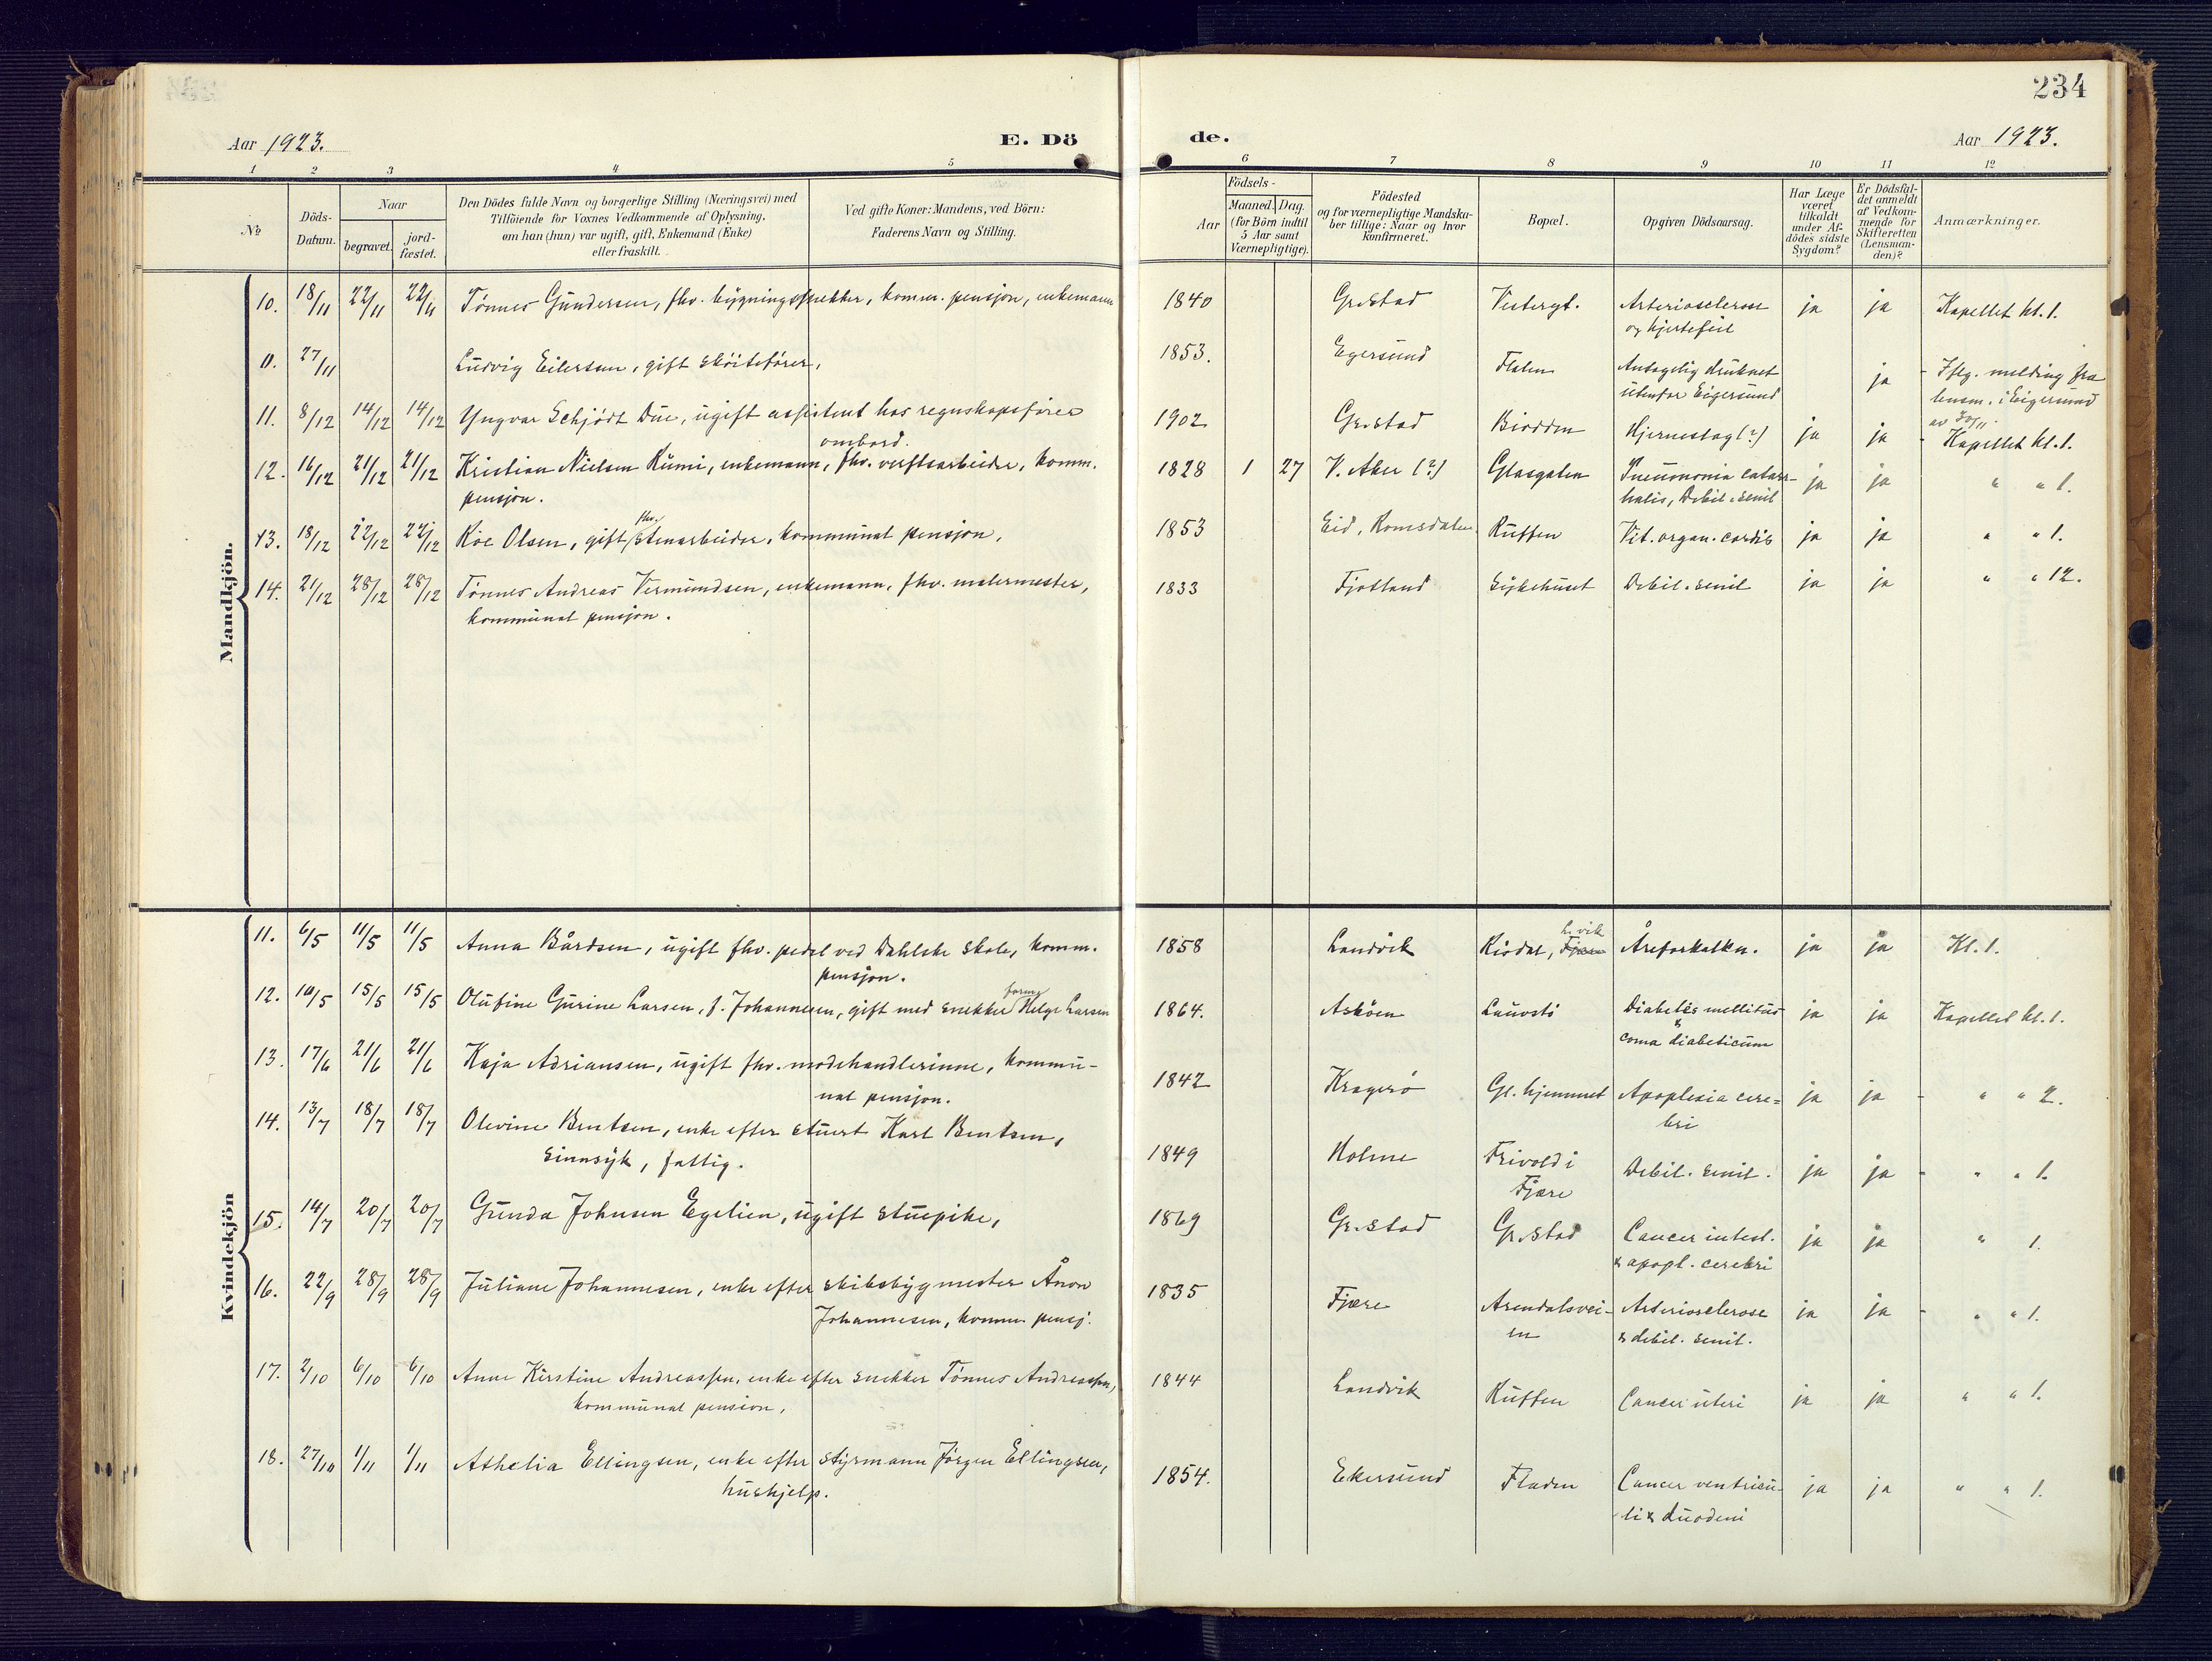 234
Aar 1923.
E. Dö
de.
Aar 1923.
1 2 3 4 5 6 7 8 9 10 11 12
No
Döds-Datum.
Naar
begravet.
jord-fæstet.
Den Dödes fulde Navn og borgerlige Stilling (Næringsvei) med
Tilföiende for Voxnes Vedkommende af Oplysning,
om han (hun) var ugift, gift, Enkemand (Enke)
eller fraskilt.
Ved gifte Koner: Mandens, ved Börn:
Faderens Navn og Stilling.
Födsels-
Aar
Maaned. Dag.
(for Börn indtil
5 Aar samt
Værnepligtige).
Födested
og for værnepligtige Mandska-
ber tillige: Naar og hvor
konfirmeret.
Bopæl.
Opgiven Dödsaarsag.
Har Læge
været
tilkaldt
under Af-
dödes sidste
Sygdom?
Er Dödsfal-
det anmeldt
af Vedkom-
mende for
Skifteretten
(Lensman-
den)?
Anmærkninger.
Mandkjön.
10. 18/11 22/11 22/11 Tönnes Gundersen, fhv. bygningssnekker, komm. pensjon, enkemann 1840 Gr.stad Vestergt. Arteriosclerose ja ja Kapellet kl. 1.
og hjertefeil
11. 27/11 Ludvig Eilertsen, gift skøitefører, 1853. Egersund Fladen Antagelig druknet ja - Iflg. melding fra
utenfor Eigersund lensm. i Eigersund
av 30/11.
11. 8/12 14/12 14/12 Yngvar Schjödt Due, ugift assistent hos regnskapsfører 1902 Gr.stad Biodden Hjerneslag (?) ja ja - Kapellet kl. 1.
ombord.
12. 16/12 21/12 21/12 Kristian Nielsen Rumi, enkemann, fhv. verftsarbeider, komm. 1828 1 27 V. Aker (?) Glasgaten Pneumonia catarr- ja ja " " 1.
pensjon. halis, Debil. senil
13. 18/12 22/12 22/12 Roe Olsen, gift fhv. stenarbeider, kommunal pensjon, 1853 Eid, Romsdalen Ruften Vit. organ. cordis ja ja " " 1.
14. 21/12 28/12 28/12 Tönnes Andreas Vermundsen, enkemann, fhv. malermester, 1833 Fjotland Sykehuset Debil. senil ja ja " " 12.
kommunal pensjon.
Kvindekjön
11. 6/5 11/5 11/5 Anna Bårdsen, ugift fhv. pedel ved Dahlske skole, komm. 1858 Landvik Rivdal, Fjære L.vik Åreforkalkn. ja ja Kl. 1.
pensjon.
12. 10/5 15/5 15/5 Olufine Gurine Larsen, f. Johannesen, gift med snekkerform. Helge Larsen 1864. Asköen Lauvstö Diabetes mellitus ja ja Kapellet kl. 1.
& coma diabeticum
13. 17/6 21/6 21/6 Kaja Adriansen, ugift fhv. modehandlerinne, kommu- 1842 Kragerö Gl. hjemmet Apoplexia cere- ja ja - " " 2.
nal pensjon. bri
14. 13/7 18/7 18/7 Olevine Bentsen, enke efter stuert Karl Bentsen, 1849 Holme Frivold i Debil. senil. ja ja - " " 1.
sinnsyk, fattig. Fjære
15. 14/7 20/7 20/7 Gunda Johnsen Egelien, ugift stuepike, 1869 Gr.stad Gr.stad Cancer intest. ja ja " 1.
& apopl. cerebri
16. 22/9 28/9 28/9 Juliane Johannesen, enke efter skibsbygmester Ånon 1835 Fjære Arendalsvei- Arteriosclerose ja ja - " " 1.
Johannesen, komm. pensj. en & debil. senil.
17. 2/10 6/10 6/10 Anne Kirstine Andreassen, enke efter snekker Tönnes Andreassen, 1844 Landvik Ruften Cancer uteri ja ja " " 1.
kommunal pension,
18. 27/10 1/11 1/11 Athelia Ellingsen, enke efter styrmann Jörgen Ellingsen, 1854. Ekersund Fladen Cancer ventricu- ja ja " " 1.
hushjelp. li & duodeni